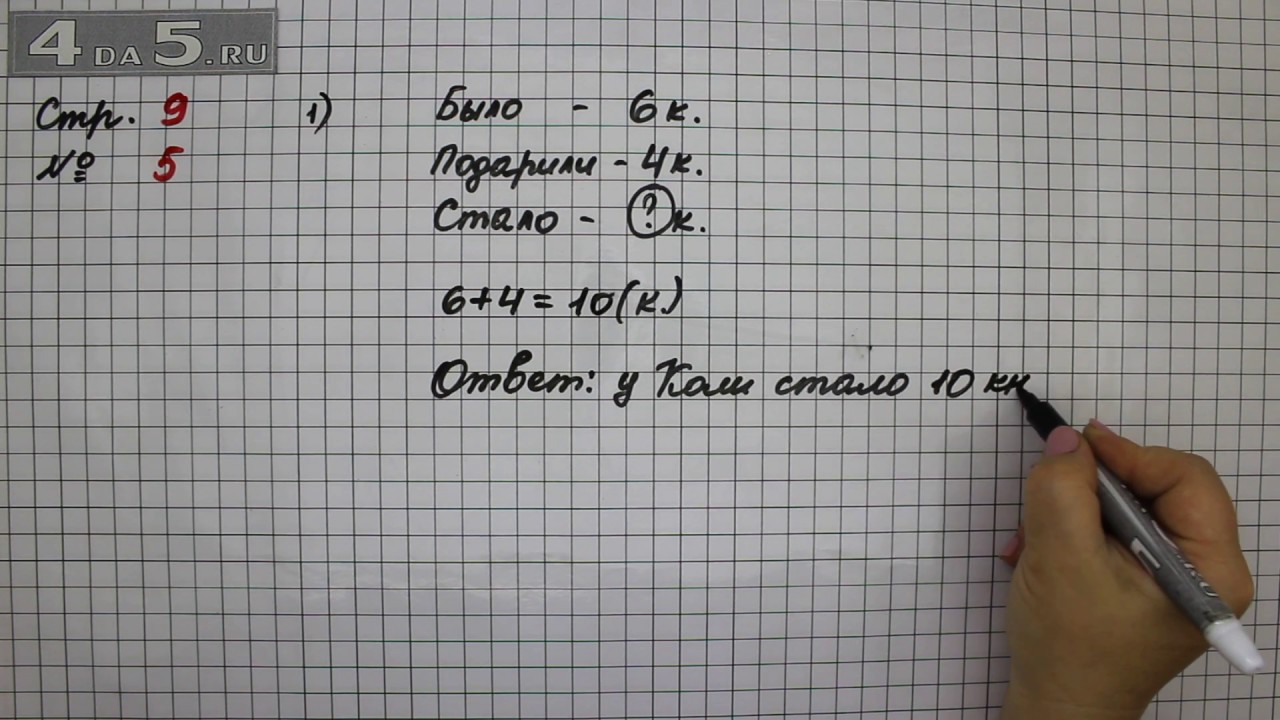 4DA5.RU
Стр. 9
№ 5
1)
Было - 6 к.
Подарили - 4 к.
Стало - ? к.
6+4=10(к.)
Ответ: у Коли стало 10 кн